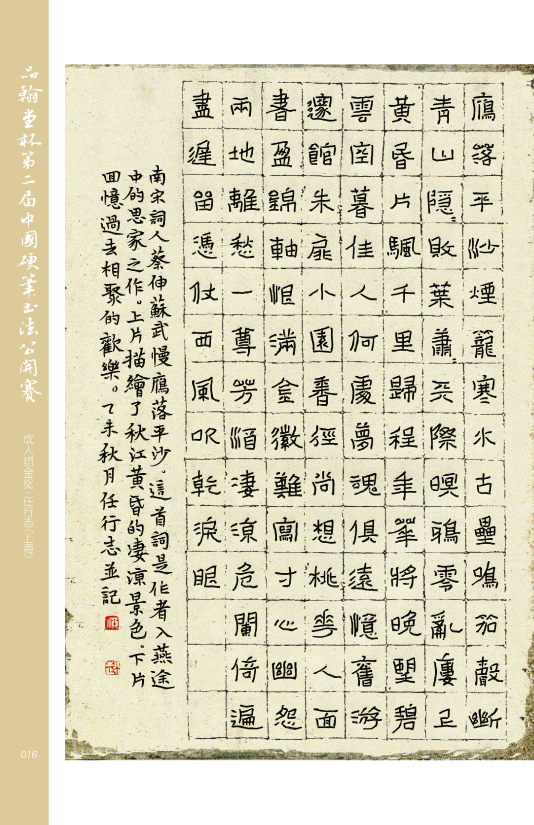 鴈落平沙煙籠寒水古壘鳴笳聲斷
青山隱〻敗葉蕭〻天際暝鴉零亂廔上
黃昏片颿千里歸程年華將晚朢碧
雲空暮佳人何處夢魂俱遠憶舊游
邃館朱扉小園香徑尚想桃華人面
書盈錦軸恨滿金徽難寫寸心幽怨
兩地離愁一尊芳酒淒涼危闌倚遍
盡遲留憑仗西風吹乾淚眼
南宋詞人蔡伸蘇武慢鴈落平沙，這首詞是作者入燕途
中的思家之作。上片描繪了秋江黃昏的淒涼景色。下片
回憶過去相聚的歡樂。乙未秋月任行志並記
品翰堂杯第二届中國硬筆书法公開賽
成人组金奖·任行志（上海）
016